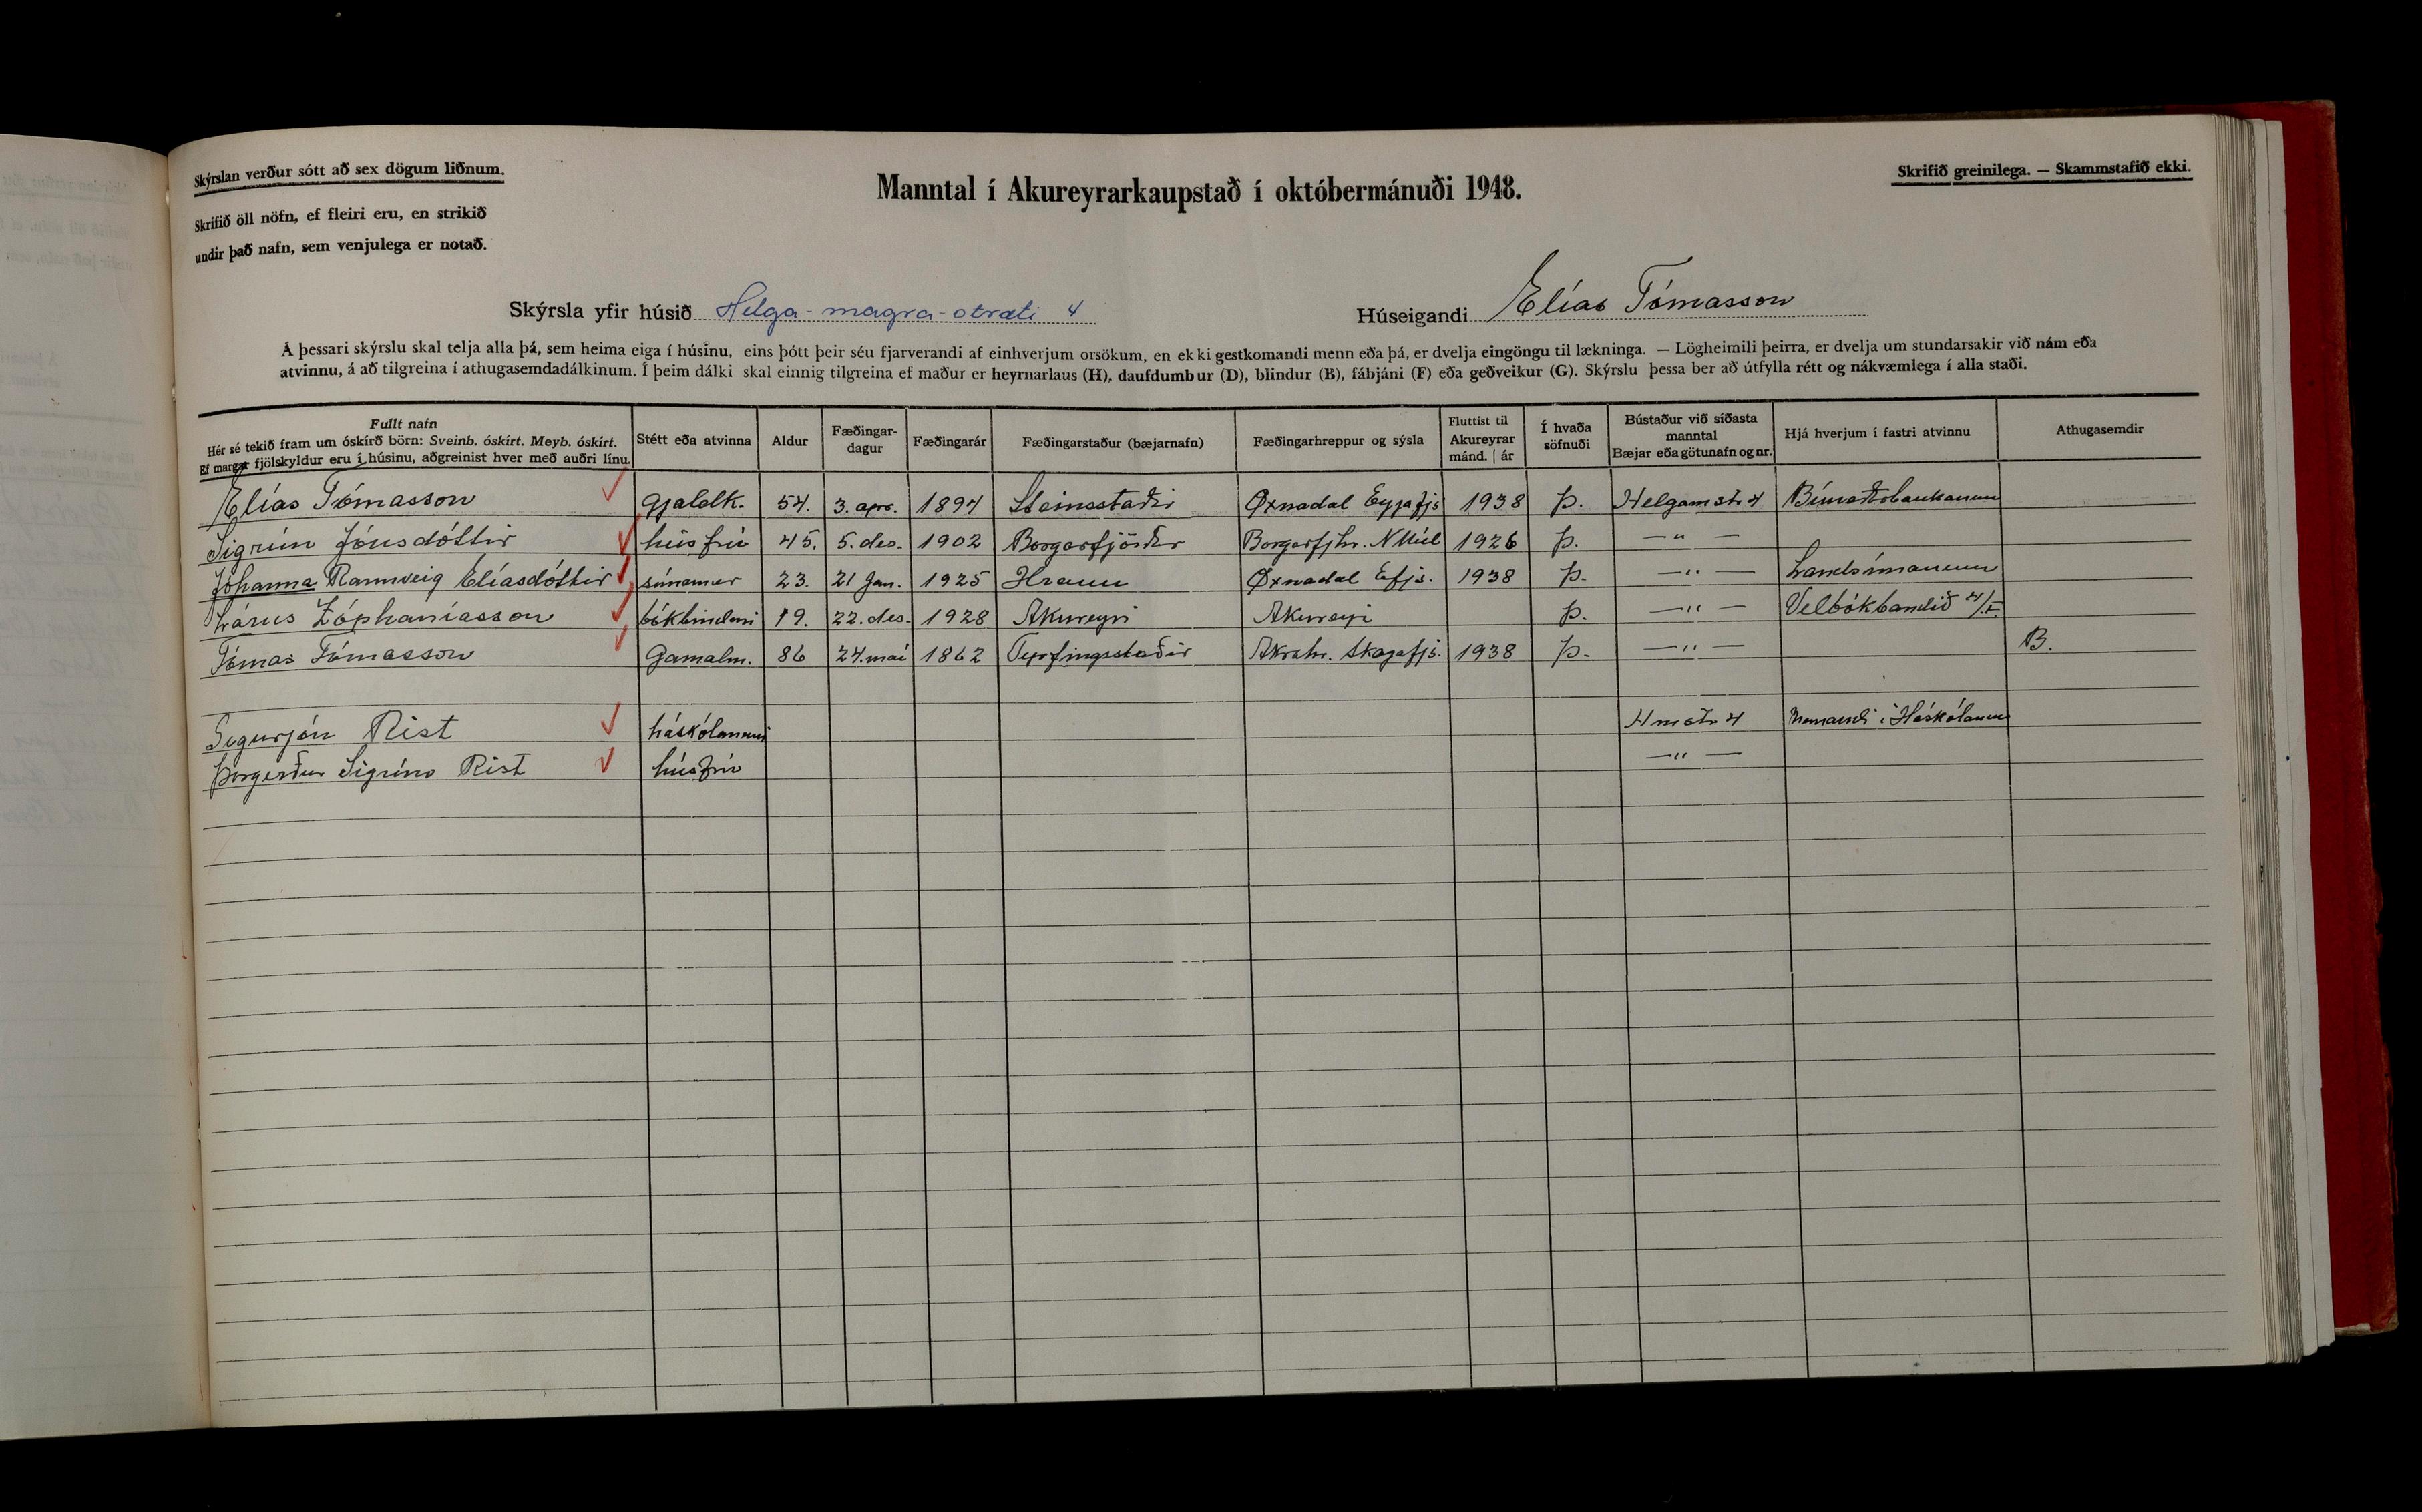 Skýrslan verður sótt að sex dögum liðnum.
Skrifið öll nöfn, ef fleiri eru, en strikið
undir það nafn, sem venjulega er notað.
Manntal í Akureyrarkaupstað í októbermánuði 1948.
Skrifið greinilega. — Skammstafið ekki.
Skýrsla yfir húsið Helga-magra-stræti 4
Húseigandi Elías Tómasson
Á þessari skýrslu skal telja alla þá, sem heima eiga í húsinu, eins þótt þeir séu fjarverandi af einhverjum orsökum, en ekki gestkomandi menn eða þá, er dvelja eingöngu til lækninga. — Lögheimili þeirra, er dvelja um stundarsakir við nám eða
atvinnu, á að tilgreina í athugasemdadálkinum. Í þeim dálki skal einnig tilgreina ef maður er heyrnarlaus (H), daufdumbur (D), blindur (B), fábjáni (F) eða geðveikur (G). Skýrslu þessa ber að útfylla rétt og nákvæmlega í alla staði.
Fullt nafn
Hér sé tekið fram um óskírð börn: Sveinb. óskírt. Meyb. óskírt.
Ef margar fjölskyldur eru í húsinu, aðgreinist hver með auðri línu.
Stétt eða atvinna
Aldur
Fæðingar-
dagur
Fæðingarár
Fæðingarstaður (bæjarnafn)
Fæðingarhreppur og sýsla
Fluttist til
Akureyrar
mánd. | ár
Í hvaða
söfnuði
Bústaður við síðasta
manntal
Bæjar eða götunafn og nr.
Hjá hverjum í fastri atvinnu
Athugasemdir
Elías Tómasson gjaldk. 54. 3. apr. 1894 Steinsstaðir Øxnadal Eyjafjs 1938 Þ. Helgamstr 4 Búnaðarbankanum
Sigrún Jónsdóttir húsfrú 45. 5. des. 1902 Borgarfjörður Borgarfjhr. N Múl 1926 Þ. —"—
Jóhanna Rannveig Elíasdóttir símamær 23. 21 jan. 1925 Hraun Øxnadal Efjs. 1938 Þ. —"— Landsímanum
Lárus Zóphaníasson bókbindari 19. 22. des. 1928 Akureyri Akureyri Þ. —"— Vélbókbandið h/f
Tómas Tómasson Gamalm. 86 24. maí 1862 Tyrfingsstaðir Akrahr. Skagafjs. 1938 Þ. —"— B.
Sigurjón Rist háskólanemi Hmstr 4 Nemandi í Háskólanum
Þorgerður Sigríno Rist húsfrú —"—